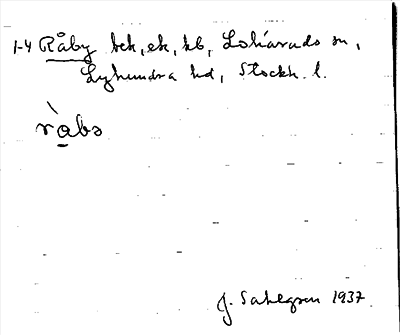 1-4 Råby bek, ek, kb, Lohärads sn,
Lyhundra hd, Stockh. l.
r̀a̲bə
J. Sahlgren 1937